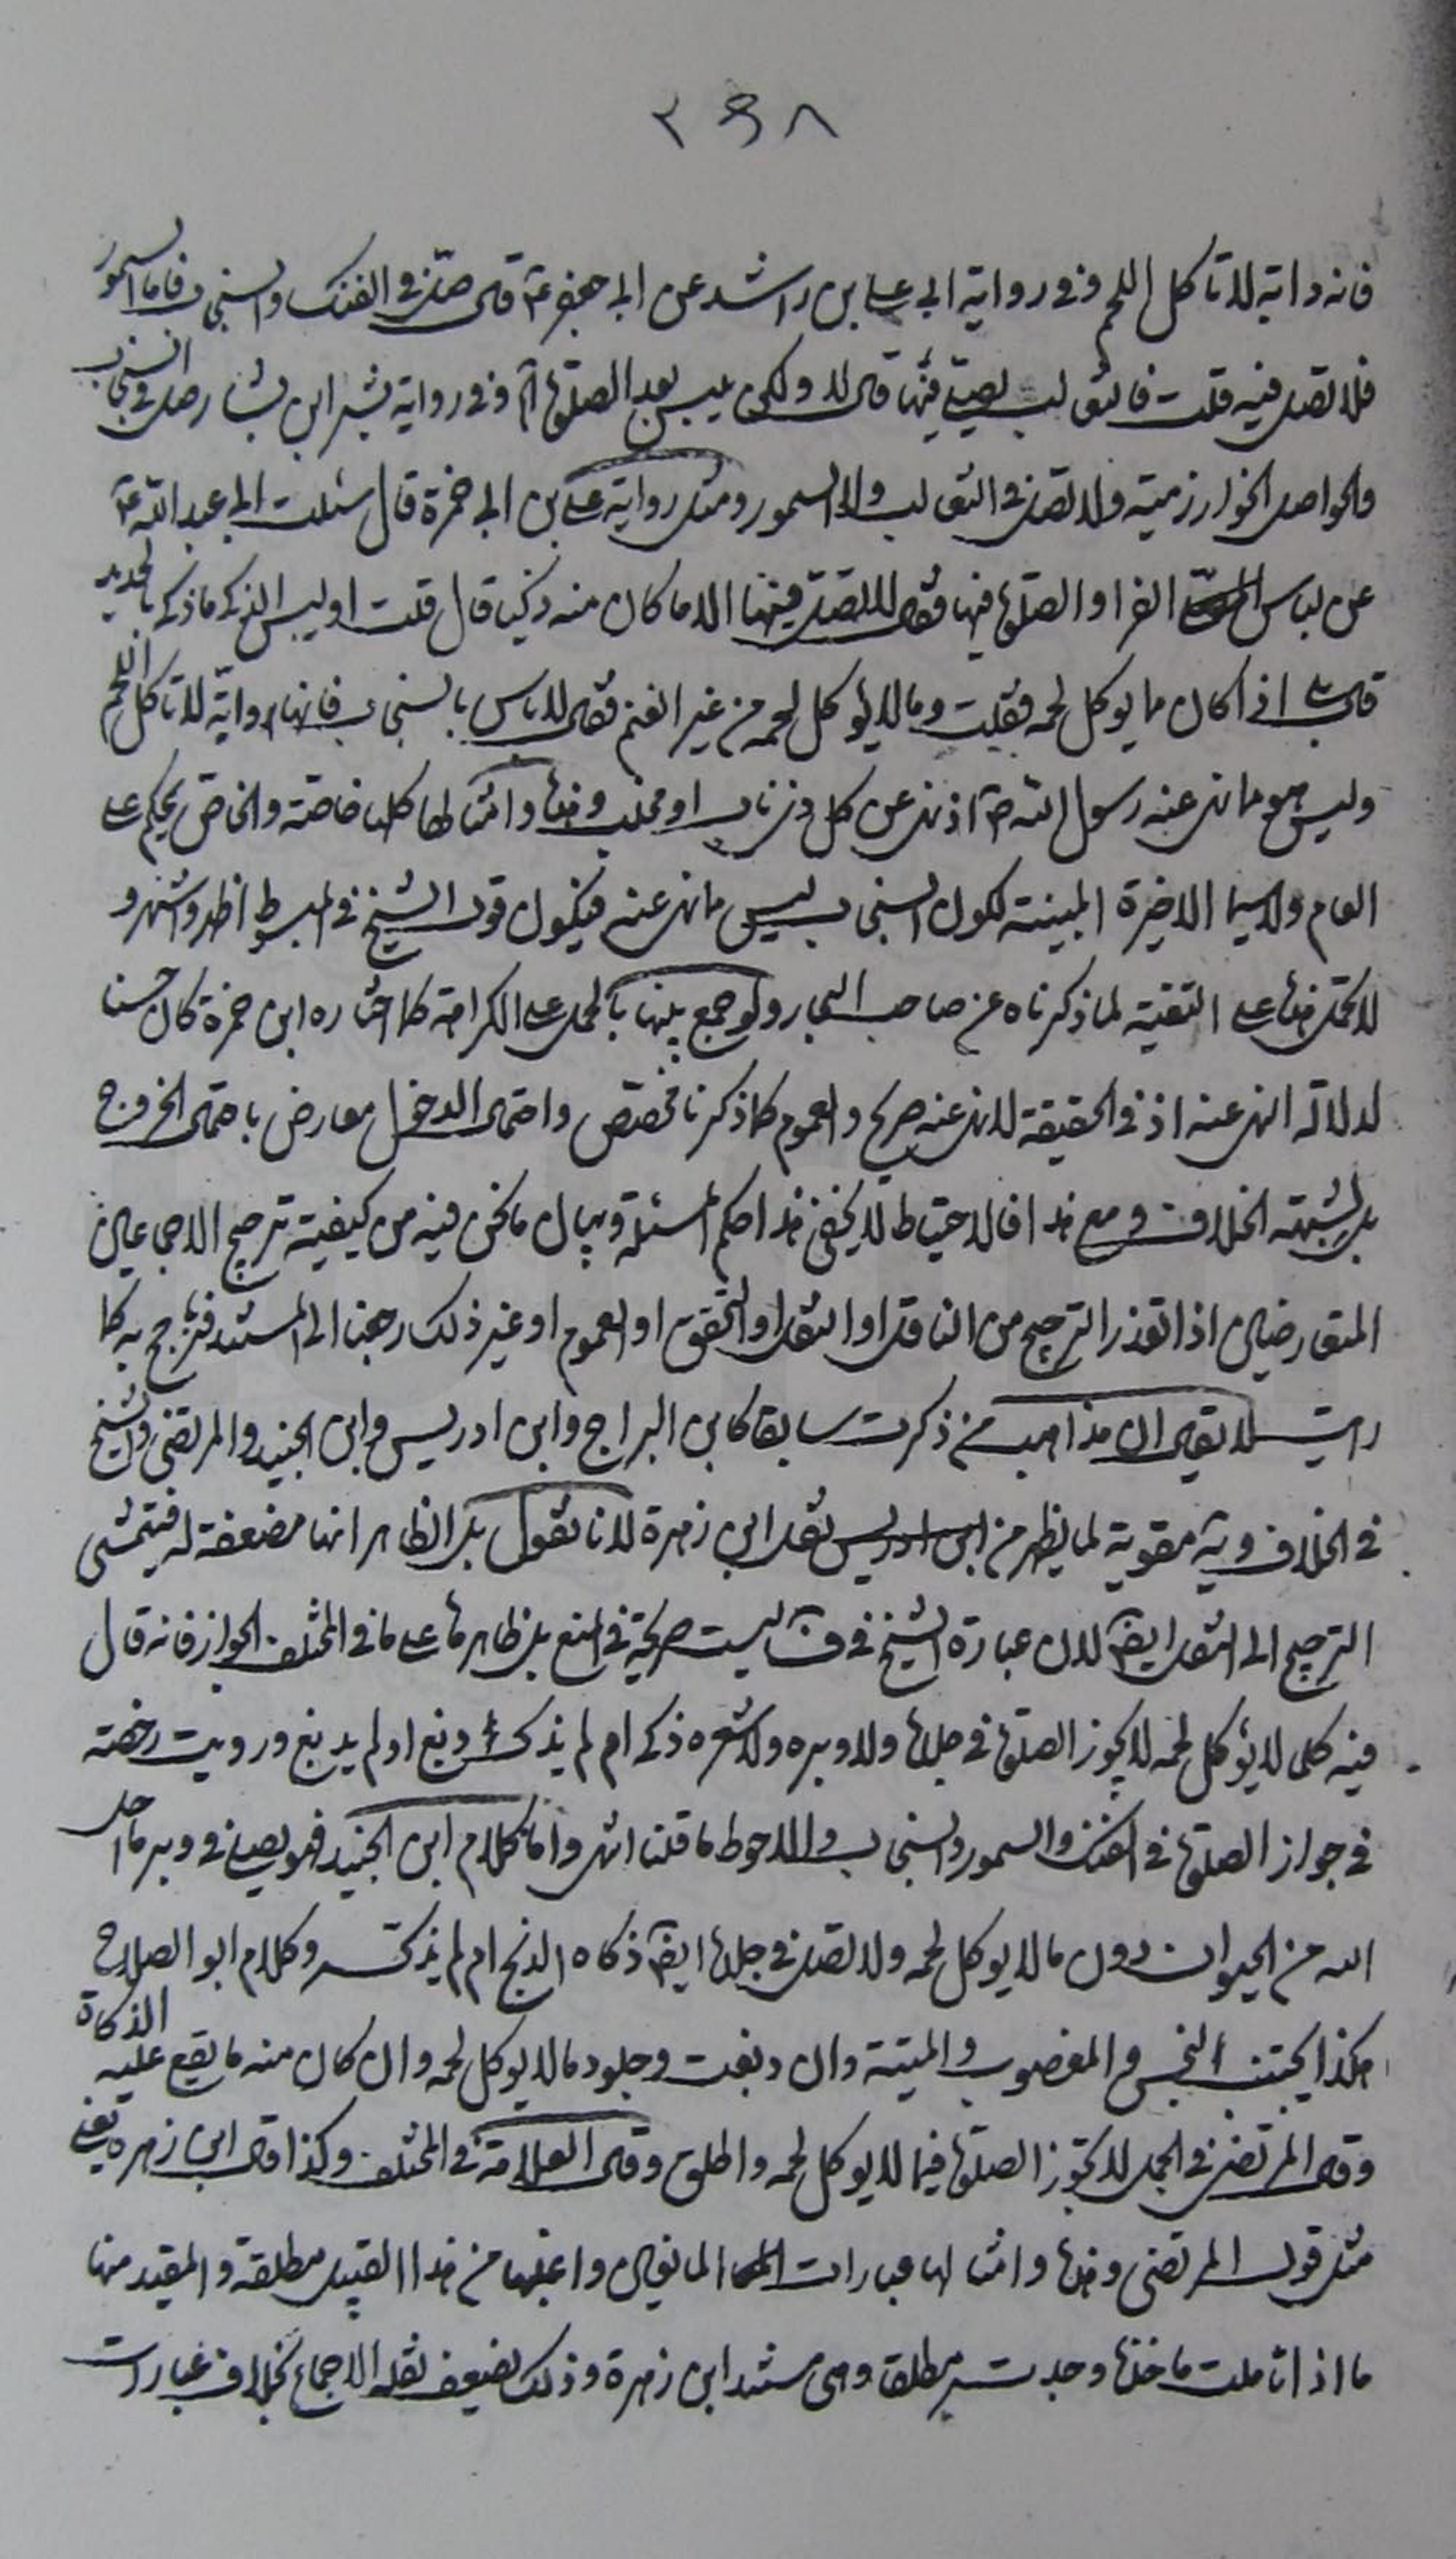 ٣٩٨
فانه دابة لا تاكل اللحم وفي رواية ابى على بن راشد عن ابى جعفر ع قال صل في الفنك والسنجاب فاما السمور
فلا تصل فيه قلت فالثعالب يصلى فيها قال لا ولكن يلبس بعد الصلوة اه وفي رواية بشير ابن بشار صل في السنجاب
والحواصل الخوارزمية ولا تصل في الثعالب ولا السمور ومثل رواية على بن ابى حمزة قال سئلت ابى عبد الله ع
عن لباس الفرا والصلوة فيها فقال لا تصل فيها الا ما كان منه ذكيا قال قلت اوليس الذكى ما ذكى بالحديد
قال بلى اذا كان ما يوكل لحمه فقلت وما لا يؤكل لحمه من غير الغنم فقال لا باس بالسنجاب فانها دابة لا تاكل اللحم
وليس هو مما نهى عنه رسول الله ص اذ نهى عن كل ذى ناب او مخلب وهذا وامثالها كلها خاصة والخاص يحكم على
العام ولا سيما الاخيرة المبينة لكون السنجاب ليس مما نهى عنه فيكون قول الشيخ في المبسوط اظهر واشهر و
لا تحمل هذا على التقية لما ذكرناه عن صاحب البحار ولو جمع بينها بالحمل على الكراهة كما اختاره ابن حمزة كان حسنا
لدلالة النهى عنه اذ في الحقيقة لا نهى عنه صريح والعموم كما ذكرنا مختص واحتمال الدخول معارض باحتمال الخروج
بل لشبهة الخلاف ومع هذا فالاحتياط لا يخفى هذا حكم المسئلة وبيان ما نحن فيه من كيفية ترجيح الاجماعين
المتعارضين اذا تعذر الترجيح من الناقل او النقل او التحقق او العموم او غير ذلك رجعنا الى المستند فترجح به كما
رايت لا يقال ان مذاهب من ذكرت سابقا كابن البراج وابن ادريس وابن الجنيد والمرتضى والشيخ
في الخلاف وية مقوية لما يظهر من نقل ابن زهرة لانا نقول بل الظاهر انها مضعفة له فيتمشى
الترجيح الى النقل ايضا لان عبارة الشيخ في ف ليست صريحة في المنع بل ظاهرها على ما في المختلف الجواز فانه قال
فيه كلما لا يؤكل لحمه لا يجوز الصلوة في جلده ولا وبره ولا شعره ذكى ام لم يذك دبغ او لم يدبغ ورويت رخصة
في جواز الصلوة في الفنك والسمور والسنجاب والاحوط ما قلنا انتهى واما كلام ابن الجنيد فهو يصلى في وبر ما احل
الله من الحيوان دون ما لا يوكل لحمه ولا تصل في جلده ايضا ذكاه الذبح ام لم يذكه وكلام ابو الصلاح
هكذا يجتنب النجس والمغصوب والميتة وان دبغت وجلود ما لا يوكل لحمه وان كان منه ما يقع عليه الذكاة
وقال المرتضى في الجمل لا تجوز الصلوة فيما لا يوكل لحمه واطلق وقال العلامة في المختلف وكذا قال ابن زهرة يعنى
مثل قول المرتضى وهذا وامثالها عبارات المانعين واغلبها من هذا القبيل مطلقة والمقيد منها
ما اذا تاملت ماخذها وجدت مطلقا وهى مستند ابن زهرة وذلك يضعف نقله الاجماع بخلاف عبارات